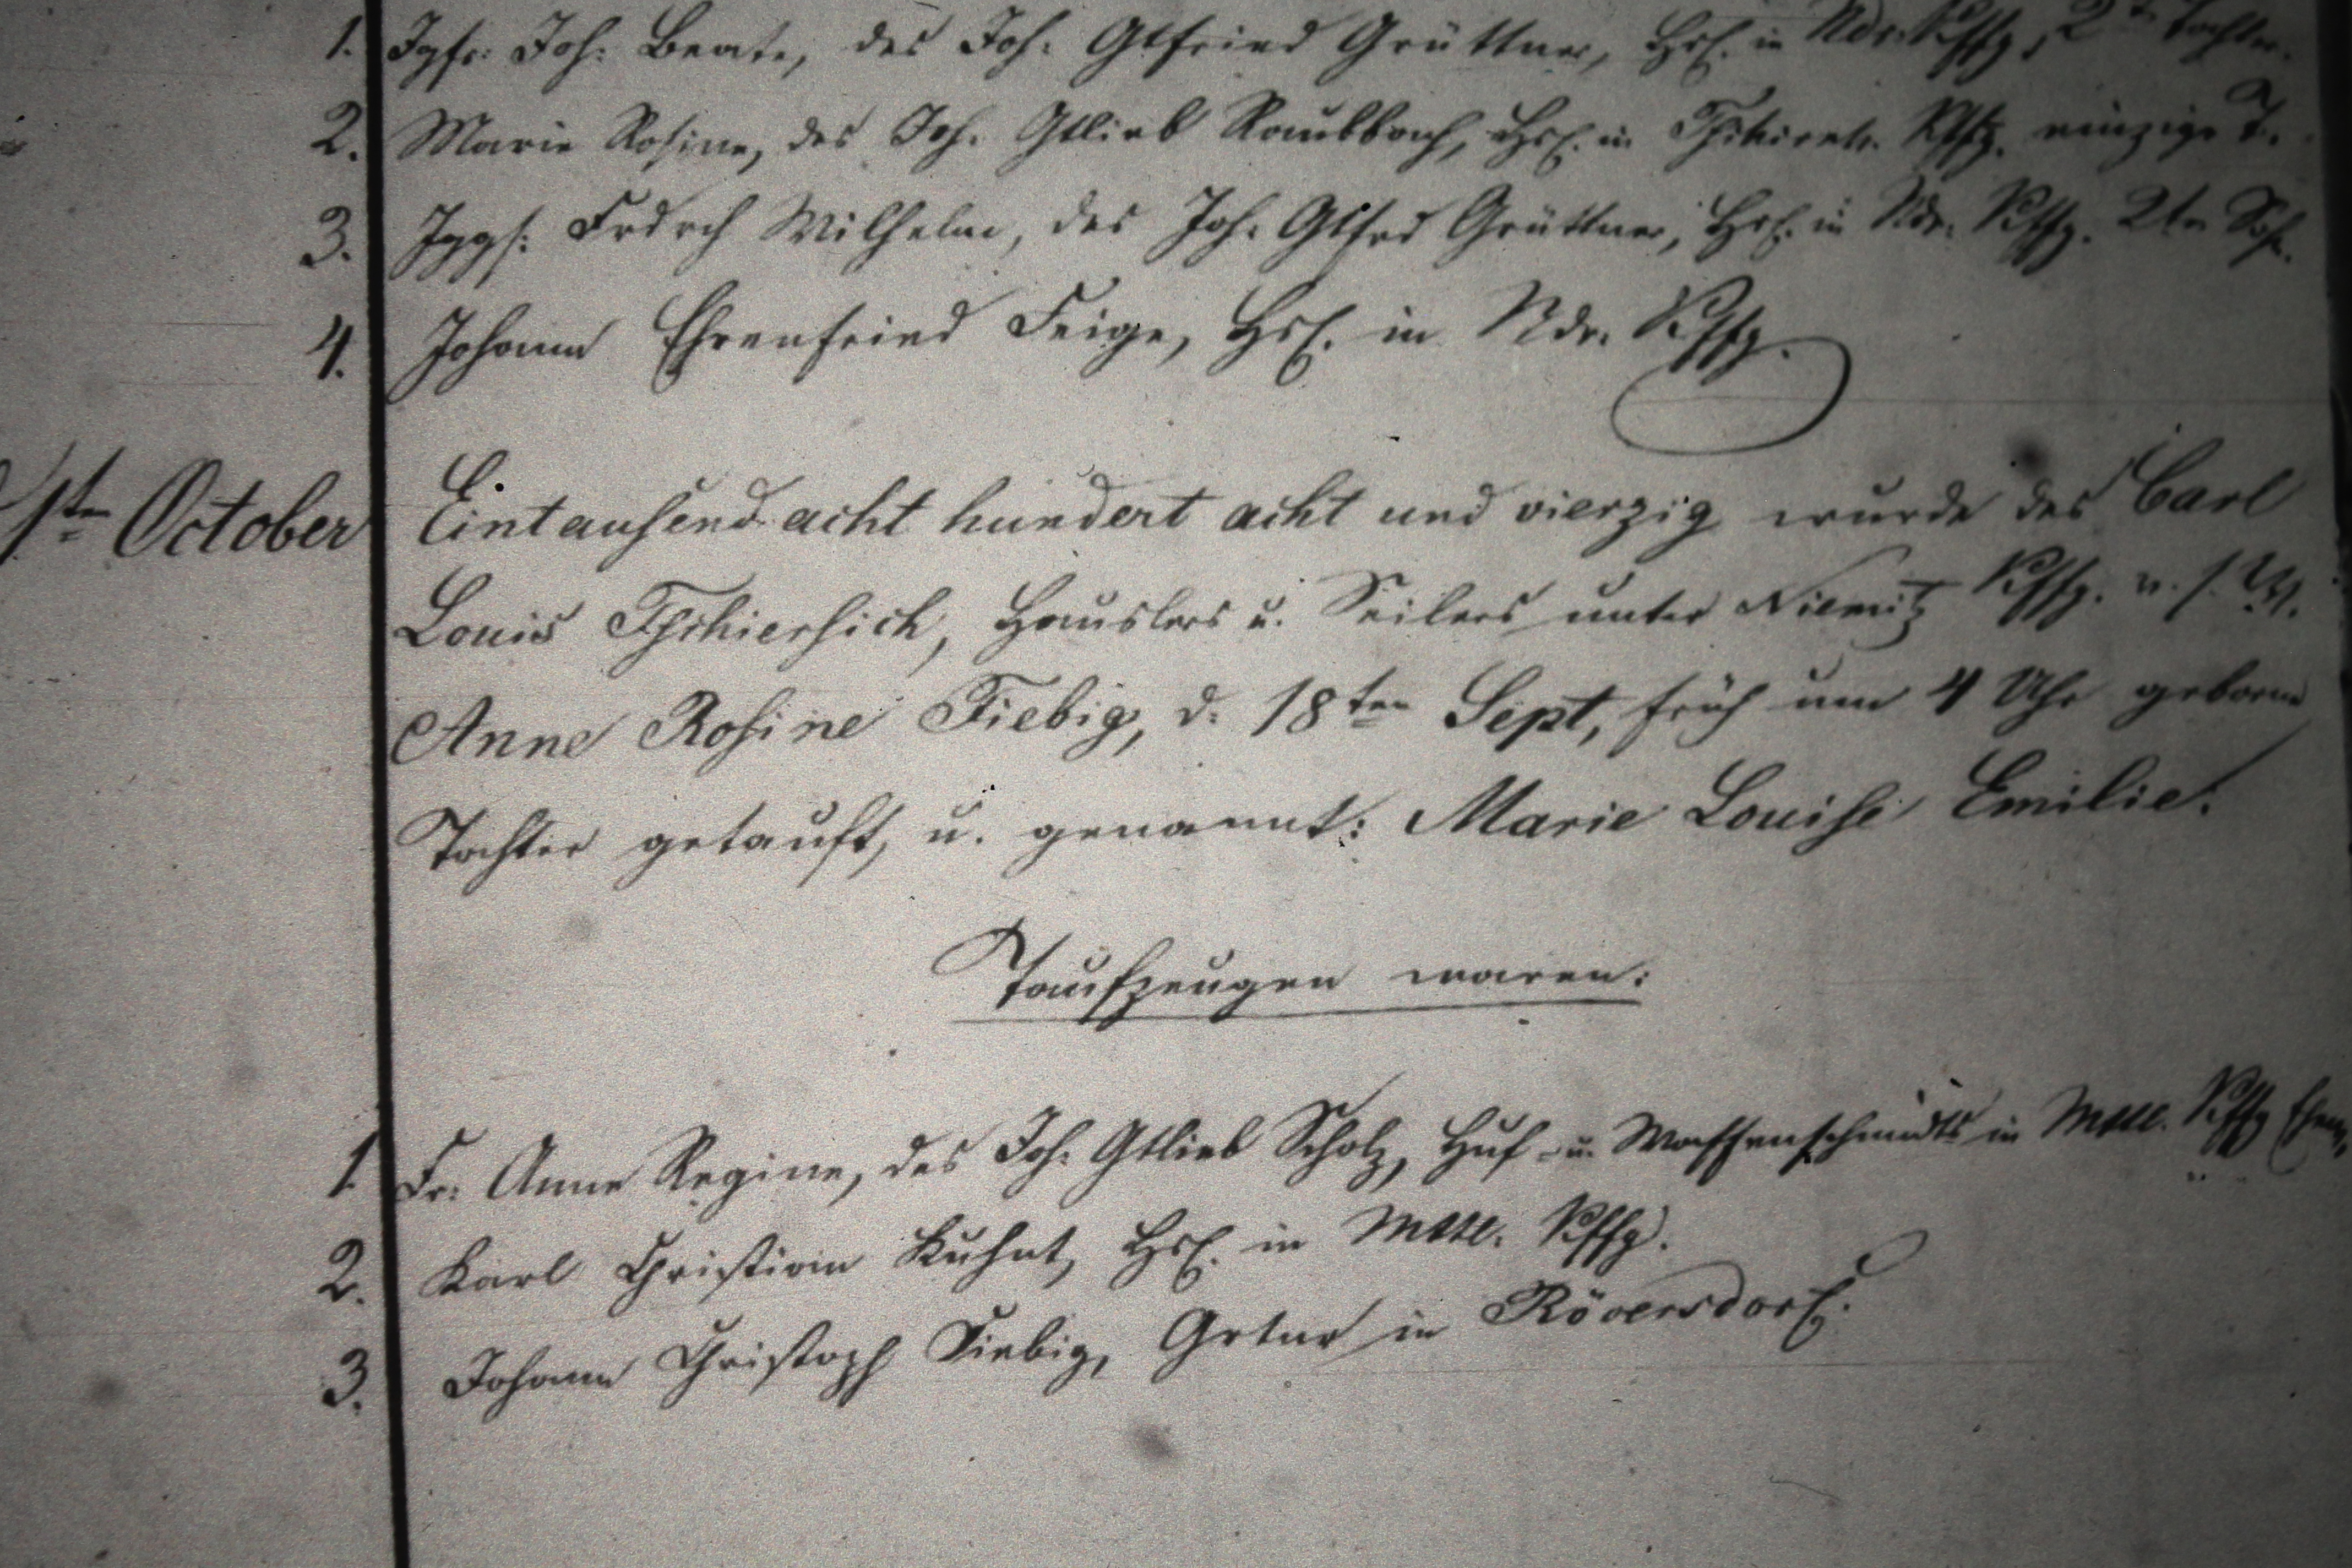 1. Jgfr. Joh. Beate, des Joh. Gtfried Grüttner, Hsl. in Ndr. Kffg, 2te Tochter.
2. Marie Rosine, des Joh. Gtlieb Raubbach, Hsl. in Kffg. einzige T.
3. Jggs: Frdrch Wilhelm, des Joh. Gtfrd Grüttner, Hsl. in Ndr. Kffg. 2tr Sohn.
4. Johann Ehrenfried Feige, Hsl. in Ndr. Kffg.
1ten October Eintausend acht hundert acht und vierzig wurde des Carl
Louis Tschiersich, Hauslers u. Seilers unter Niemitz Kffg. v. s. W.
Anne Rosine Fiebig, d. 18ten Sept, früh um 4 Uhr geborne
Tochter getauft, u. genannt: Marie Louise Emilie.
Taufzeugen waren:
1. Fr. Anne Regine, des Joh. Gtlieb Scholz, Huf- u. Waffenschmidts in Mttl. Kffg
2. Karl Christian Kuhnt, Hsl. in Mttl. Kffg.
3. Johann Christoph Fiebig, Grtnr in Röversdorf.